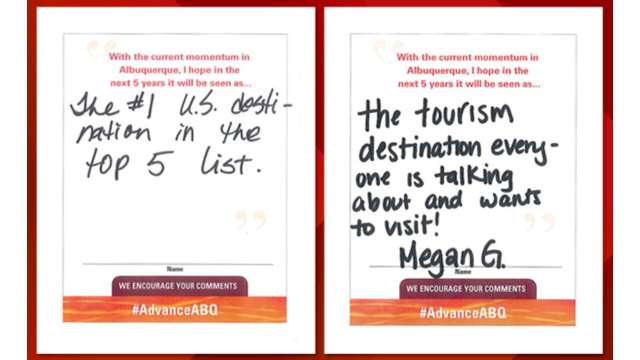 With the current momentum in
Albuquerque, I hope in the
next 5 years it will be seen as...
The #1 U.S. desti-
nation in the
top 5 list.
Name
WE ENCOURAGE YOUR COMMENTS
#AdvanceABQ
With the current momentum in
Albuquerque, I hope in the
next 5 years it will be seen as...
the tourism
destination every-
one is talking
about and wants
to visit!
Megan G.
Name
WE ENCOURAGE YOUR COMMENTS
#AdvanceABQ